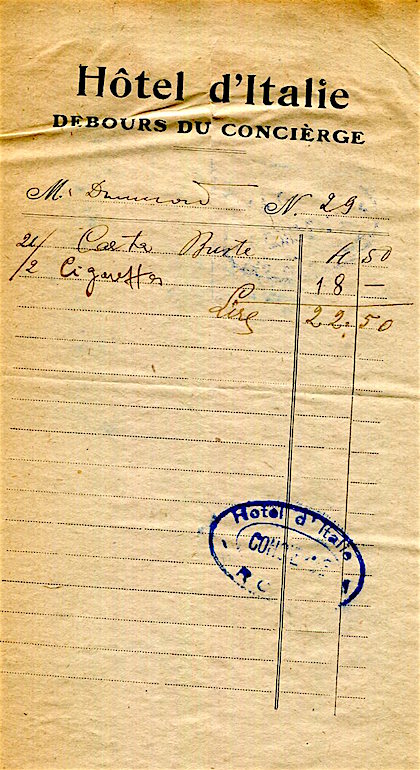 Hôtel d'Italie
DEBOURS DU CONCIÈRGE
M. Drummond N. 29
24/ Carta Buste 4 50
/2 Cigarettes 18 —
Lire 22.50
Hotel d'Italie